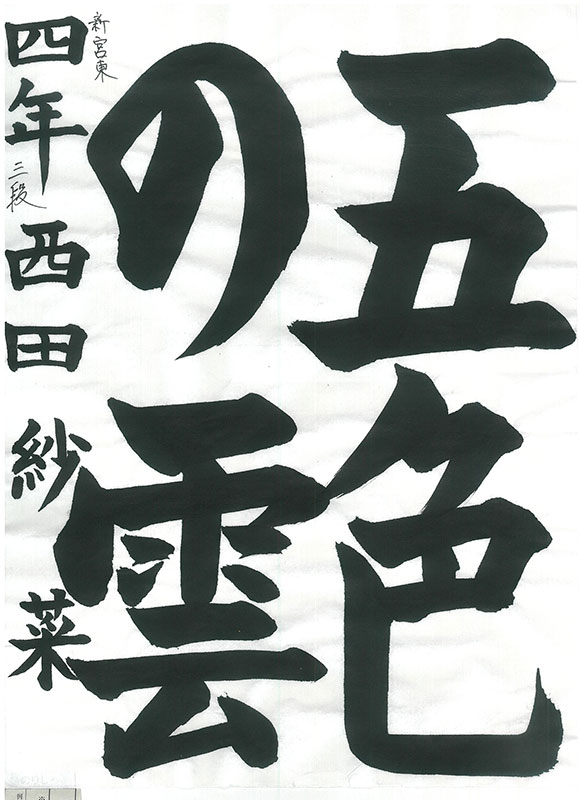 五色
の雲
新宮東
四年 西田 紗菜
三段